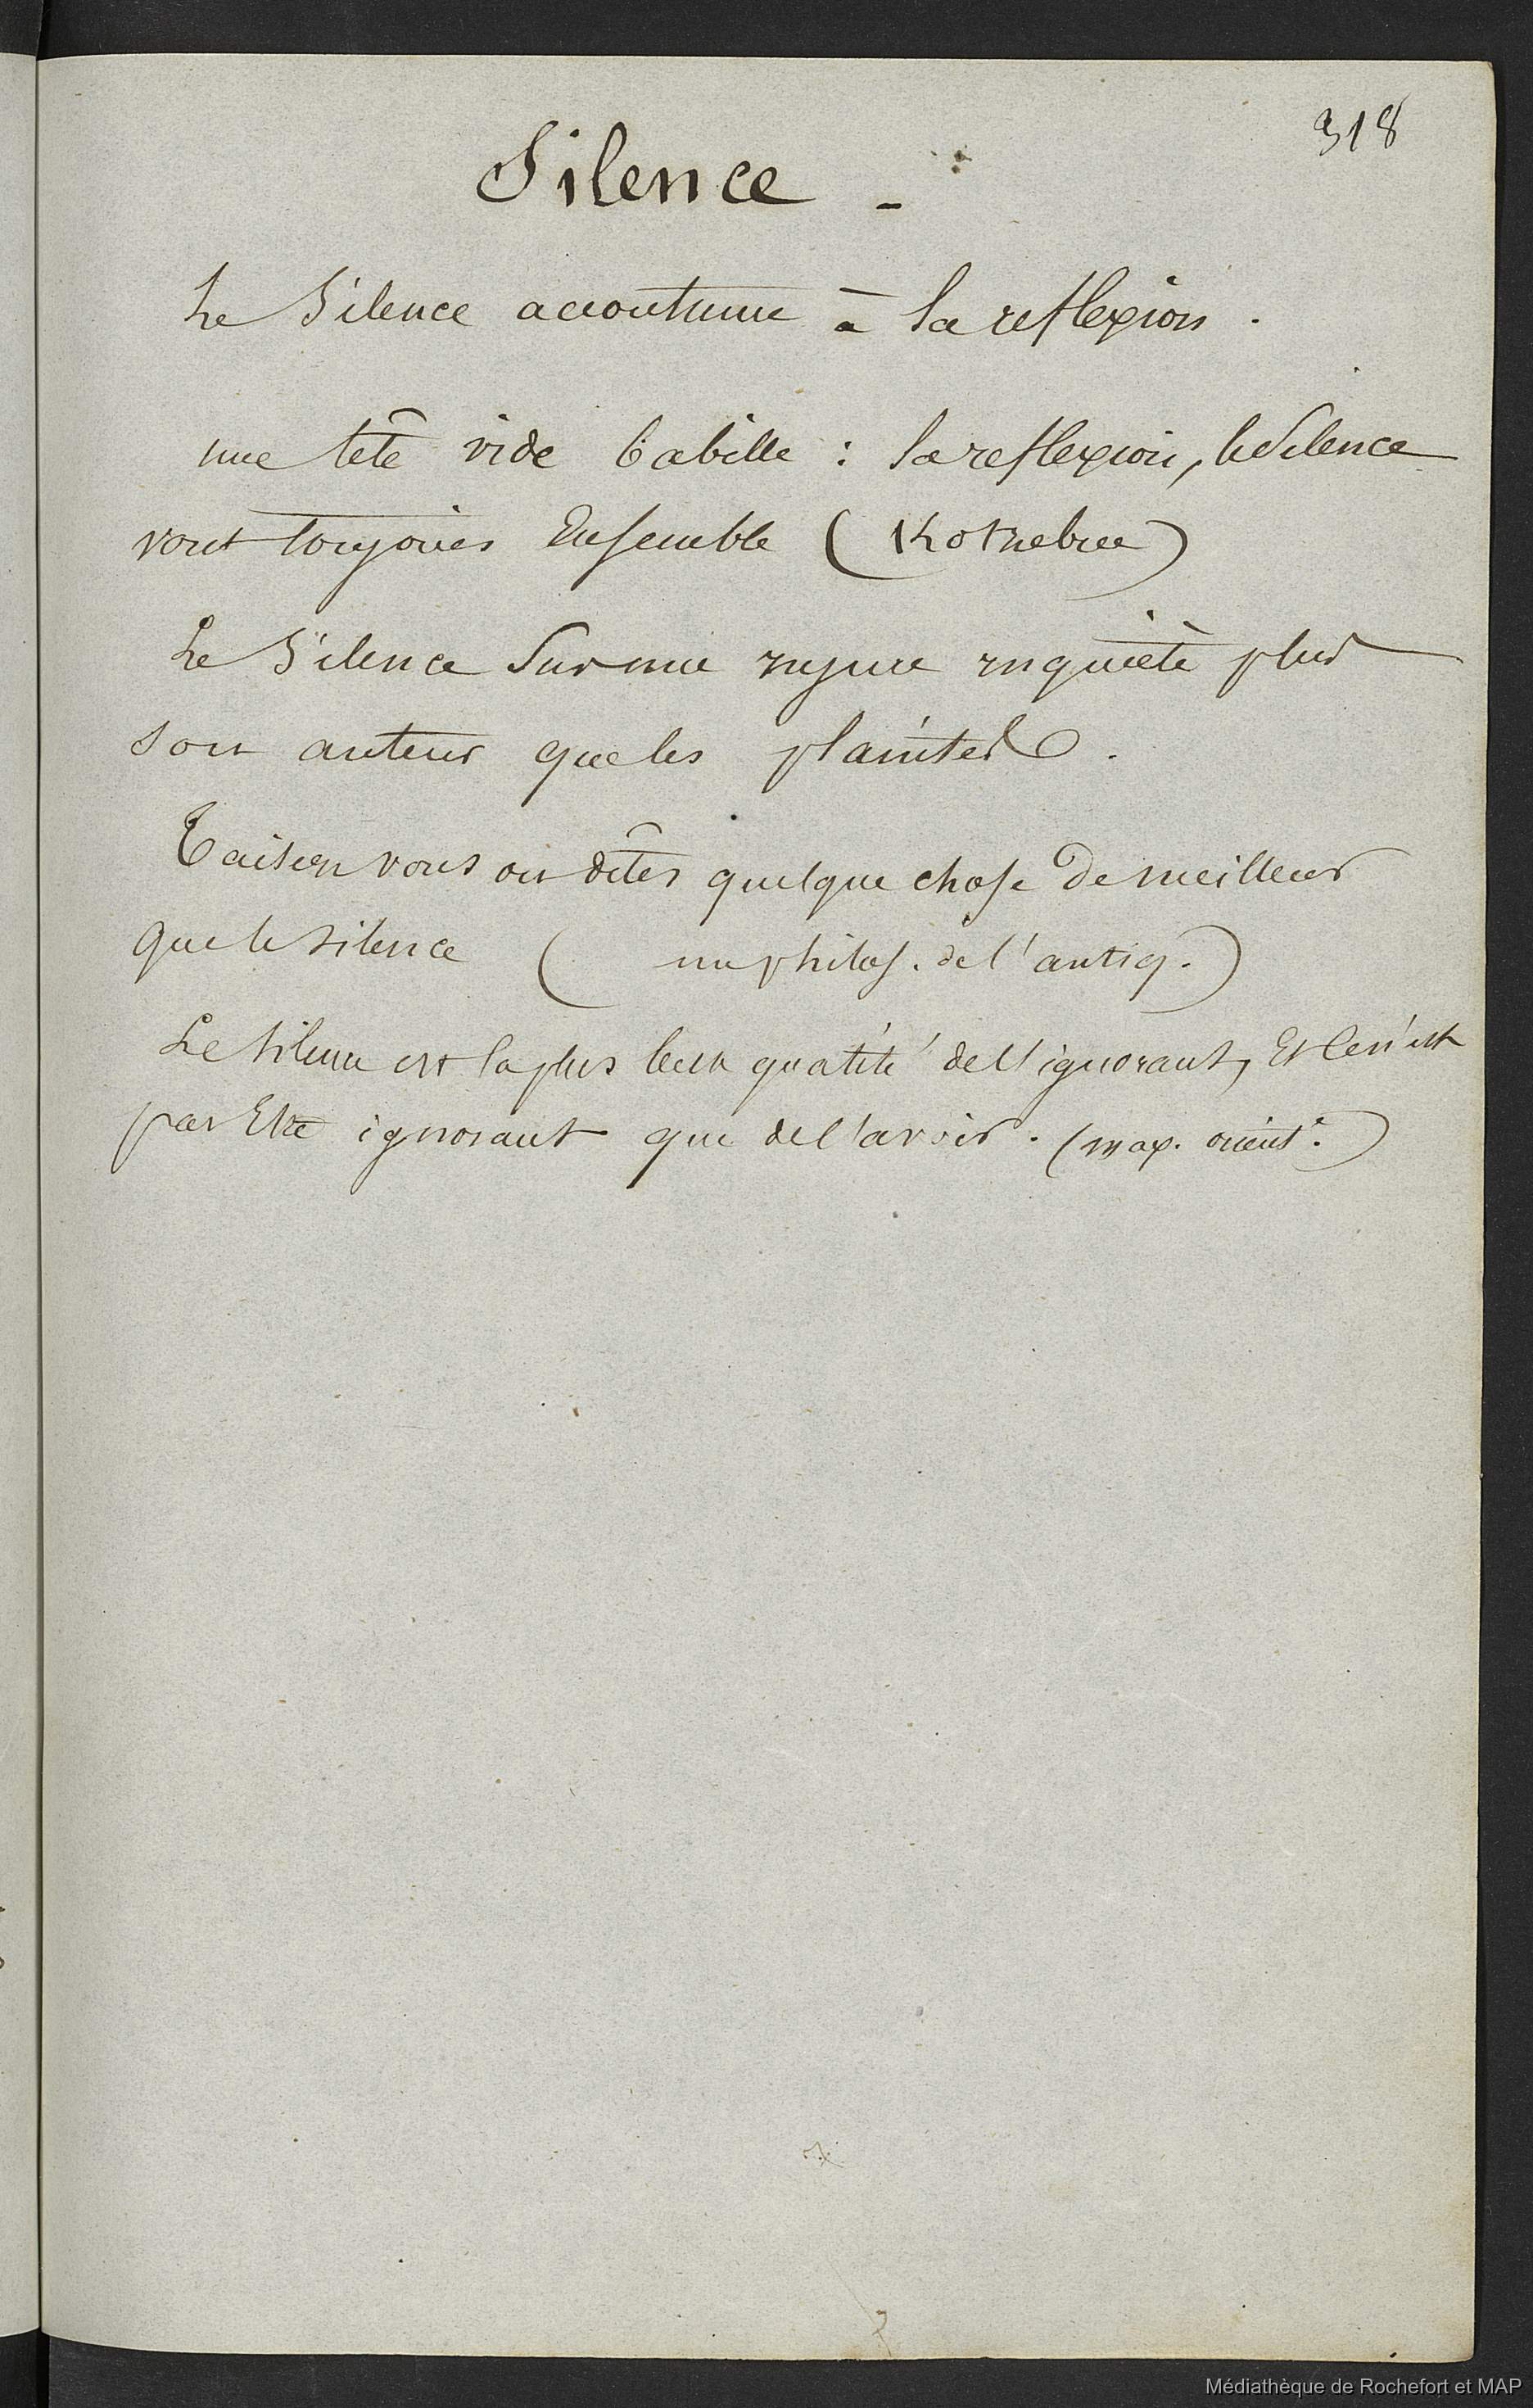 318
Silence -
Le Silence accoutume à la reflexion.
une tête vide babille : la reflexion, le Silence
vont toujours Ensemble (Kotzebue)
Le Silence Sur une injure inquiète plus
son auteur que les plaintes.
Taisez vous ou dîtes quelque chose de meilleur
que le silence ( un philos. de l'antiq.)
Le silence est la plus belle qualité de l'ignorant, Et ce n'est
pas Etre ignorant que de l'avoir. (max. orient.)
Médiathèque de Rochefort et MAP